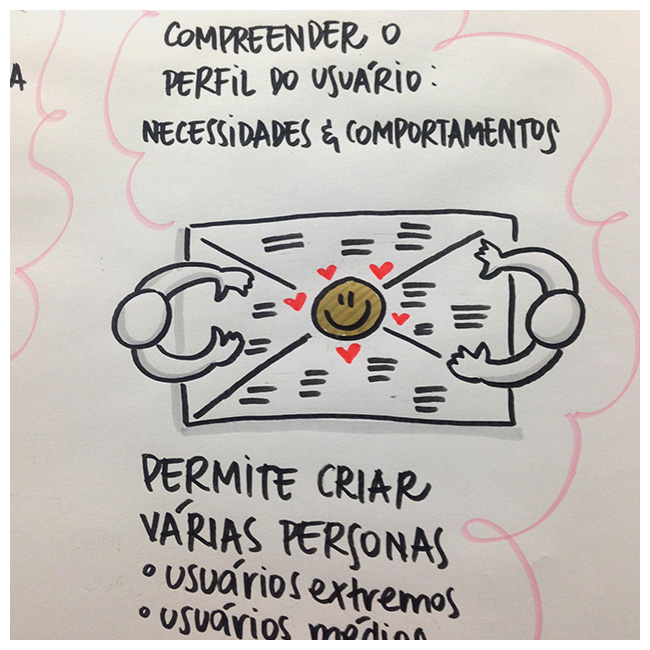 COMPREENDER O
A
PERFIL DO USUÁRIO:
NECESSIDADES & COMPORTAMENTOS
PERMITE CRIAR
VÁRIAS PERSONAS
• usuários extremos
• usuários médios